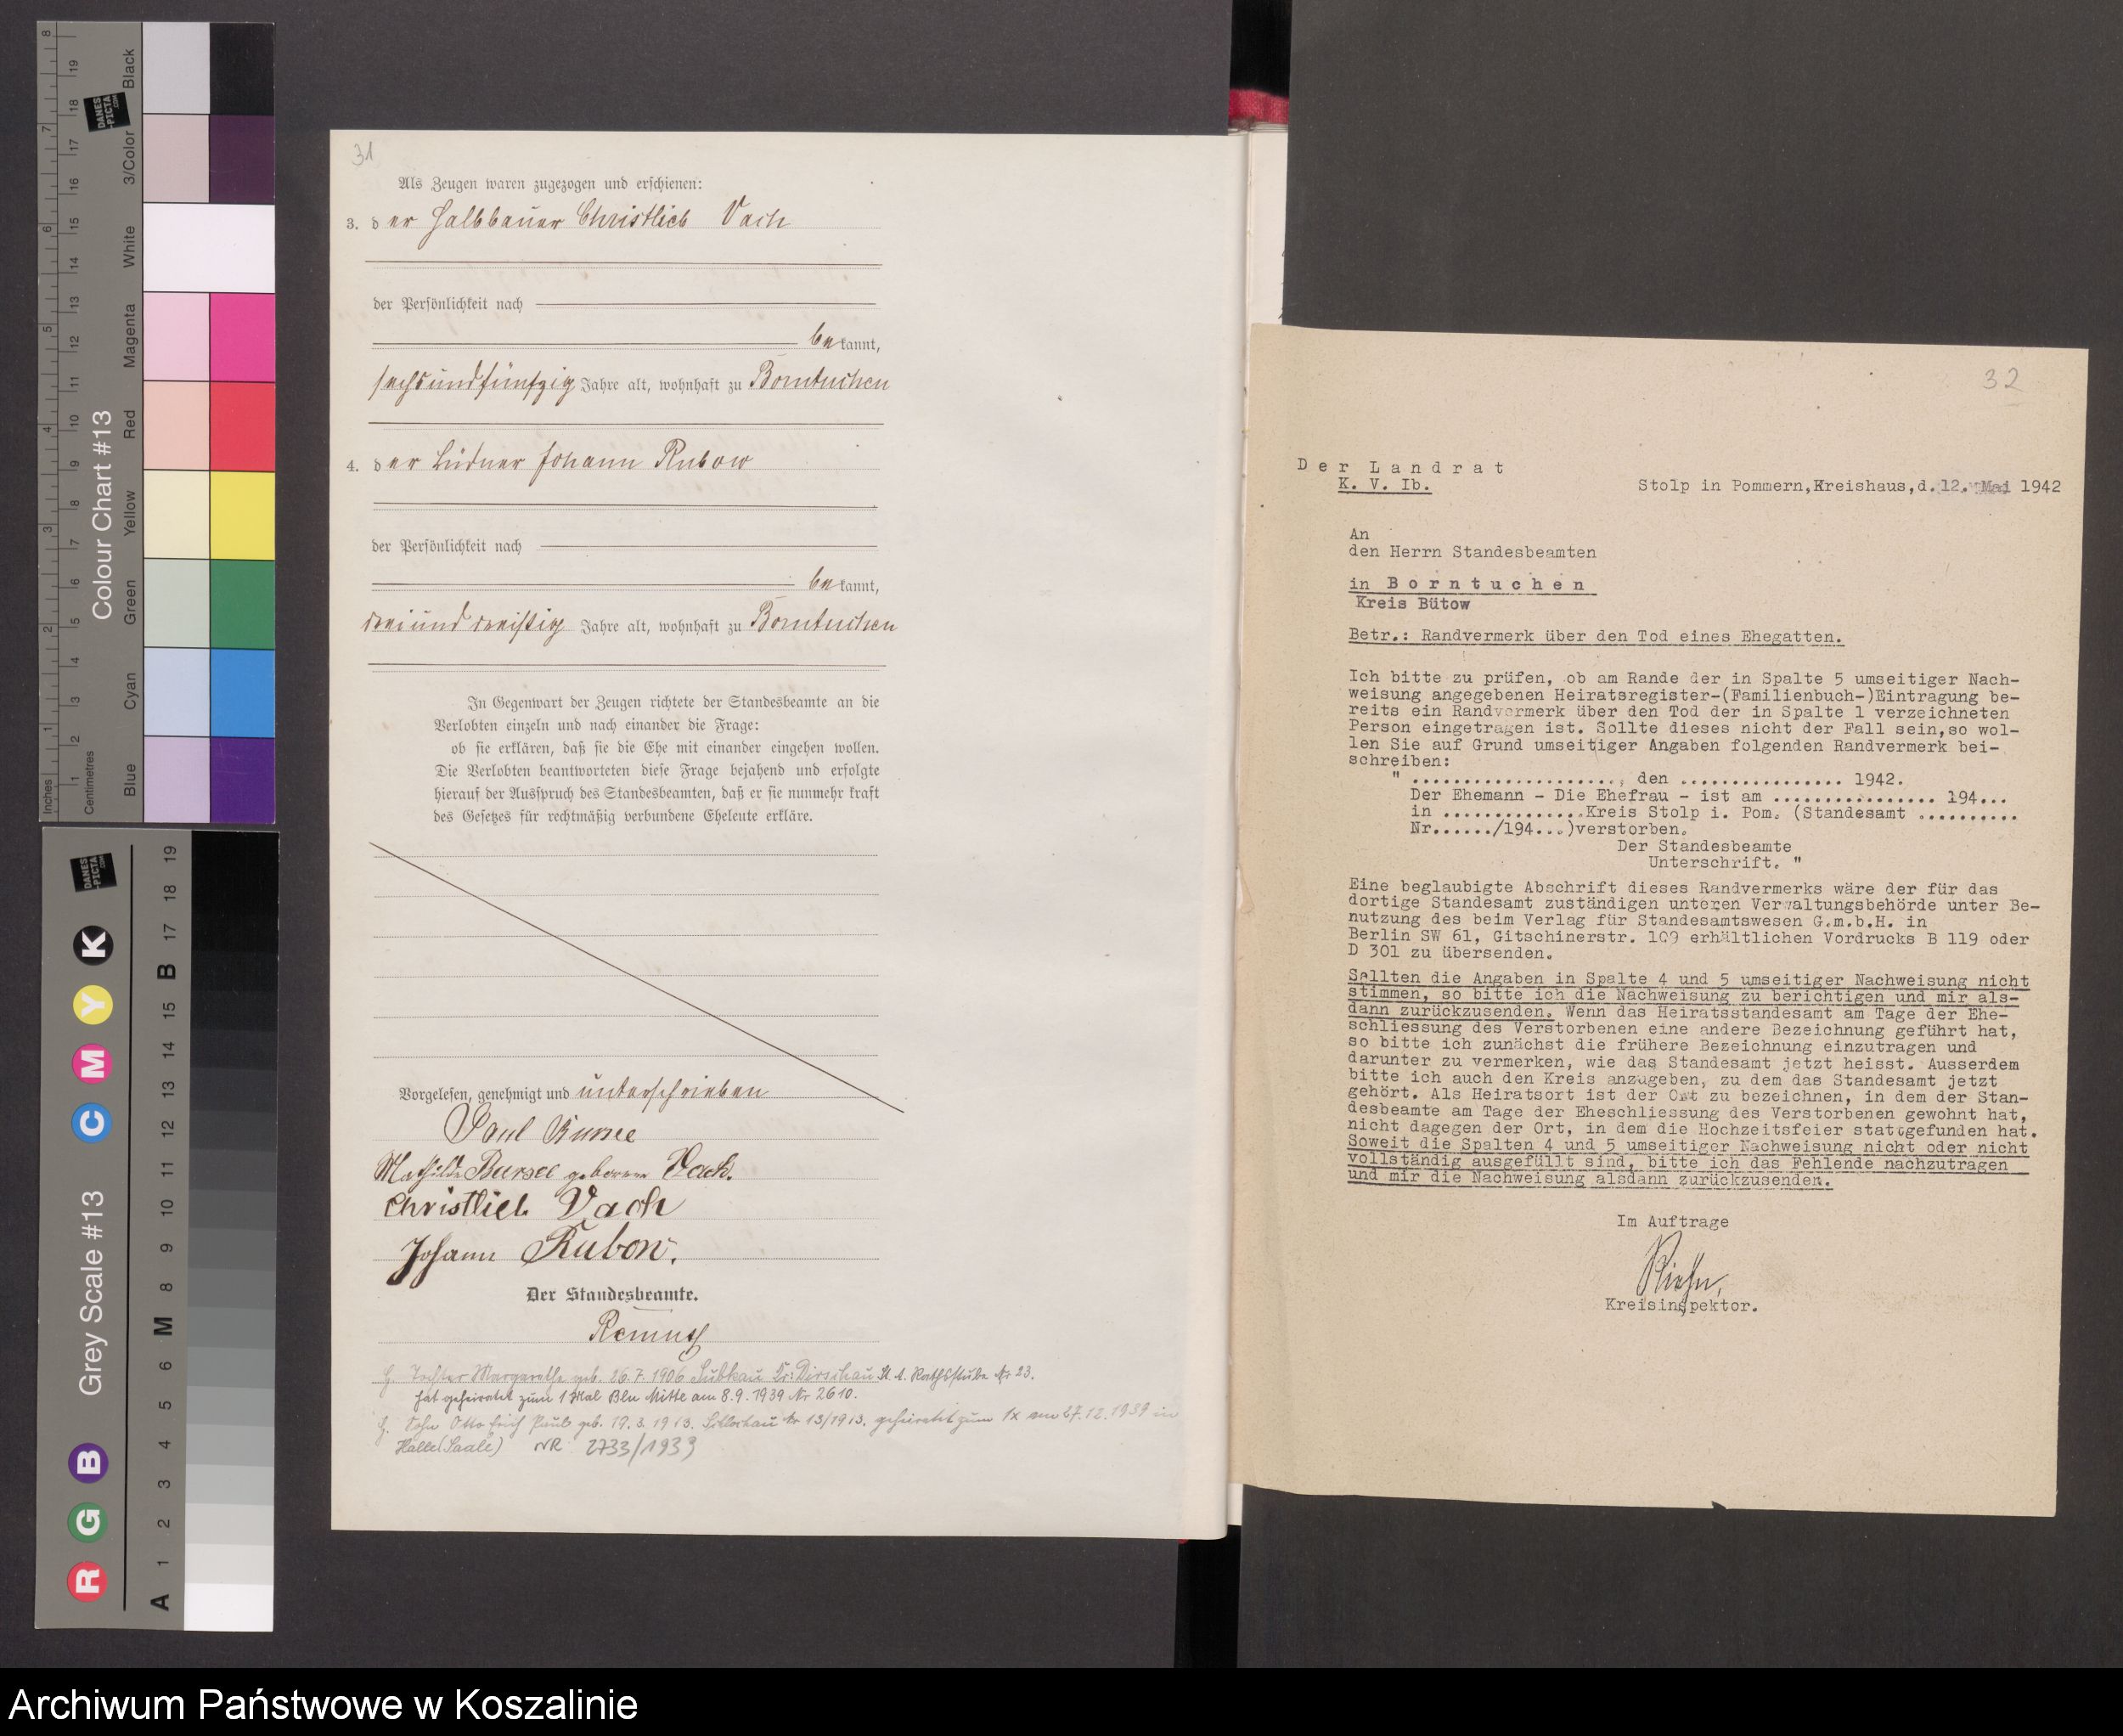 8
7
6
5
4
3
2
1
Inches
19
18
17
16
15
14
13
12
11
10
9
8
7
6
5
4
3
2
1
Centimetres
Colour Chart #13
Black
3/Color
White
Magenta
Red
Yellow
Green
Cyan
Blue
DANES
-PICTA
.COM
Grey Scale #13
R G B C M Y K
A 1 2 3 4 5 6 M 8 9 10 11 12 13 14 15 B 17 18 19
DANES
-PICTA
.COM
31
Als Zeugen waren zugezogen und erschienen:
3. der Halbbauer Christlieb Vach
der Persönlichkeit nach
bekannt,
sechsundfünfzig Jahre alt, wohnhaft zu Borntuchen
4. der Büdner Johann Rubow
der Persönlichkeit nach
bekannt,
dreiund dreißig Jahre alt, wohnhaft zu Borntuchen
In Gegenwart der Zeugen richtete der Standesbeamte an die
Verlobten einzeln und nach einander die Frage:
ob sie erklären, daß sie die Ehe mit einander eingehen wollen.
Die Verlobten beantworteten diese Frage bejahend und erfolgte
hierauf der Ausspruch des Standesbeamten, daß er sie nunmehr kraft
des Gesetzes für rechtmäßig verbundene Eheleute erkläre.
Vorgelesen, genehmigt und unterschrieben
Paul
Mathilde geborene Vach.
Christlieb Vach
Johann Rubow.
Der Standesbeamte.
Tochter Margarethe geb. 26.7.1906 Subkau Kr: Dirschau St. A. Rathsstube Nr 23.
hat geheiratet zum 1 Mal Bln Mitte am 8.9.1939 Nr 2610.
Sohn Otto Erich Paul geb. 19.3.1913. Nr 13/1913. geheiratet zum 1x am 27.12.1939 in
Halle (Saale) NR 2733/1939
32
Der Landrat
K. V. Ib.
Stolp in Pommern,Kreishaus,d. 12. Mai 1942
An
den Herrn Standesbeamten
in Borntuchen
Kreis Bütow
Betr.: Randvermerk über den Tod eines Ehegatten.
Ich bitte zu prüfen, ob am Rande der in Spalte 5 umseitiger Nach-
weisung angegebenen Heiratsregister-(Familienbuch-)Eintragung be-
reits ein Randvermerk über den Tod der in Spalte 1 verzeichneten
Person eingetragen ist. Sollte dieses nicht der Fall sein,so wol-
len Sie auf Grund umseitiger Angaben folgenden Randvermerk bei-
schreiben:
" ...................., den ................ 1942.
Der Ehemann - Die Ehefrau - ist am ................ 194...
in ..............Kreis Stolp i. Pom. (Standesamt ..........
Nr....../194...)verstorben.
Der Standesbeamte
Unterschrift. "
Eine beglaubigte Abschrift dieses Randvermerks wäre der für das
dortige Standesamt zuständigen unteren Verwaltungsbehörde unter Be-
nutzung des beim Verlag für Standesamtswesen G.m.b.H. in
Berlin SW 61, Gitschinerstr. 109 erhältlichen Vordrucks B 119 oder
D 301 zu übersenden.
Sollten die Angaben in Spalte 4 und 5 umseitiger Nachweisung nicht
stimmen, so bitte ich die Nachweisung zu berichtigen und mir als-
dann zurückzusenden. Wenn das Heiratsstandesamt am Tage der Ehe-
schliessung des Verstorbenen eine andere Bezeichnung geführt hat,
so bitte ich zunächst die frühere Bezeichnung einzutragen und
darunter zu vermerken, wie das Standesamt jetzt heisst. Ausserdem
bitte ich auch den Kreis anzugeben, zu dem das Standesamt jetzt
gehört. Als Heiratsort ist der Ort zu bezeichnen, in dem der Stan-
desbeamte am Tage der Eheschliessung des Verstorbenen gewohnt hat,
nicht dagegen der Ort, in dem die Hochzeitsfeier stattgefunden hat.
Soweit die Spalten 4 und 5 umseitiger Nachweisung nicht oder nicht
vollständig ausgefüllt sind, bitte ich das Fehlende nachzutragen
und mir die Nachweisung alsdann zurückzusenden.
Im Auftrage
Kreisinspektor.
Archiwum Państwowe w Koszalinie